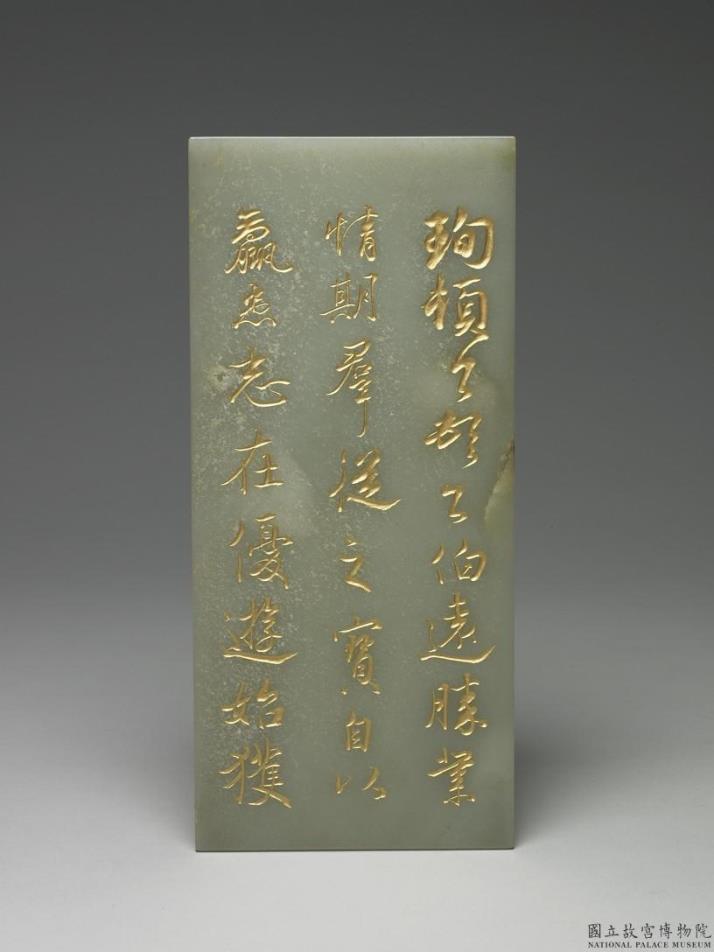 珣頓首頓首伯遠勝業
情期羣從之寶自以
羸患志在優遊始獲
國立故宮博物院
NATIONAL PALACE MUSEUM